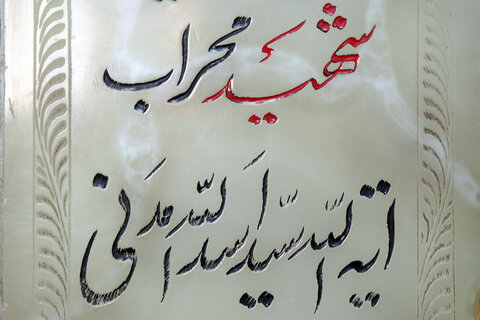 شهید محراب
آیة اللّه سیّد اسداللّه مدنی